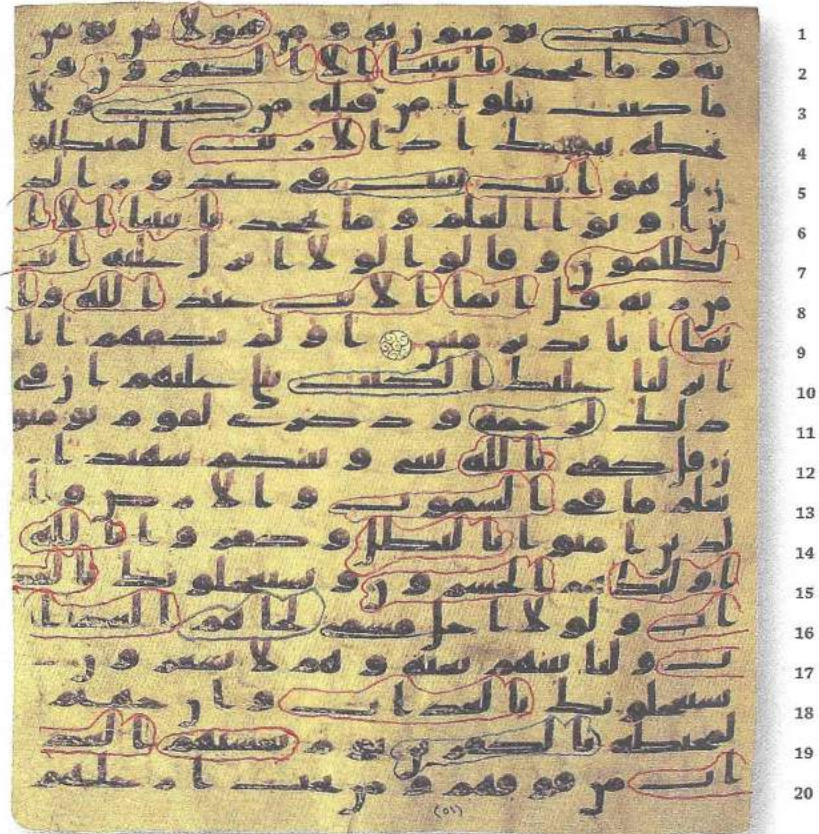 1 الكتب يومنون به ومن هولا من يومن
2 به وما يجحد باييتنا الا الكفرون و
3 ما كنت تتلوا من قبله من كتب ولا
4 تخطه بيمينك اذا لارتب المبطلو
5 ن بل هو ايت بينت في صدور الذ
6 ين اوتوا العلم وما يجحد باييتنا الا ا
7 لظلمون وقالوا لولا انزل عليه ايت
8 من ربه قل انما الايت عند الله وا
9 نما انا نذير مبين اولم يكفهم انا
10 انزلنا عليك الكتب يتلى عليهم ان في
11 ذلك لرحمة وذكرى لقوم يومنو
12 ن قل كفى بالله بيني وبينكم شهيدا ي
13 علم ما في السموت والارض وا
14 لذين امنوا بالبطل وكفروا بالله
15 اولئك هم الخسرون ويستعجلونك بالعذ
16 اب ولولا اجل مسمى لجاهم العذا
17 ب ولياتينهم بغتة وهم لا يشعرون
18 يستعجلونك بالعذاب وان جهنم
19 لمحيطة بالكفرين يوم يغشيهم العذ
20 اب من فوقهم ومن تحت ارجلهم